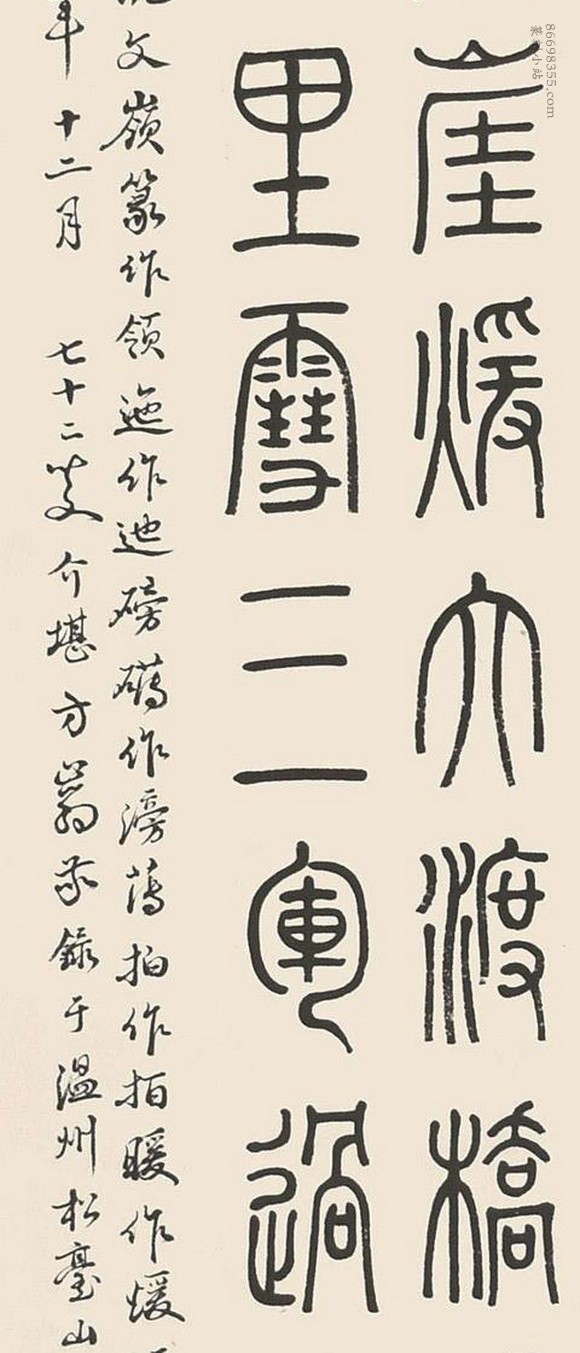 崖煖大渡橋
里雪三軍過
文嶺篆作領迤作迆磅礴作滂薄拍作拍暖作煖
年十二月 七十二叟介堪方巖敬錄于溫州松臺山
86698355.com
篆刻小站